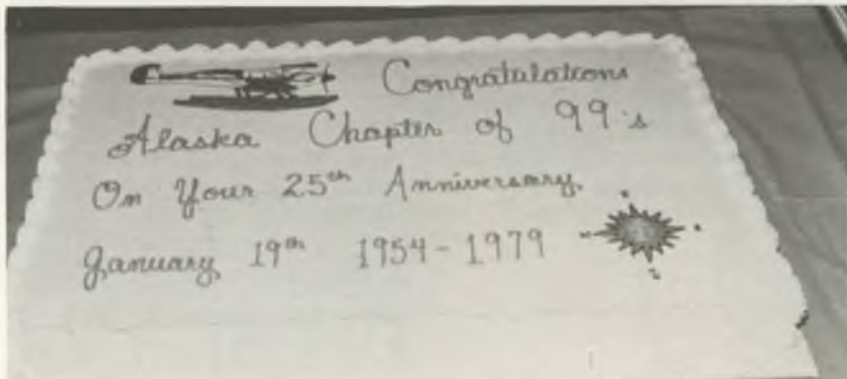 Congratulations
Alaska Chapter of 99's
On Your 25th Anniversary
January 19th 1954-1979